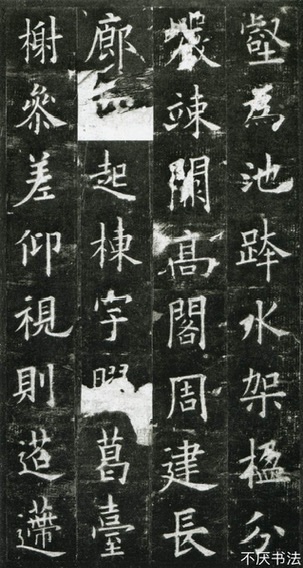 壑為池跨水架楹分
巖竦闕高閣周建長
廊起棟宇葛臺
榭參差仰視則迢遰
不厌书法